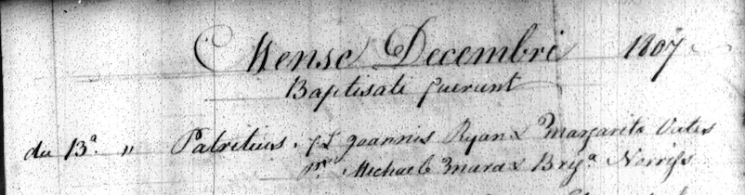 Mense Decembri 1807
Baptisati fuerunt
die 13a. " Patritius. f.L Joannis Ryan & Margarita
pnr. Michael Mara & Brig.a Norriss